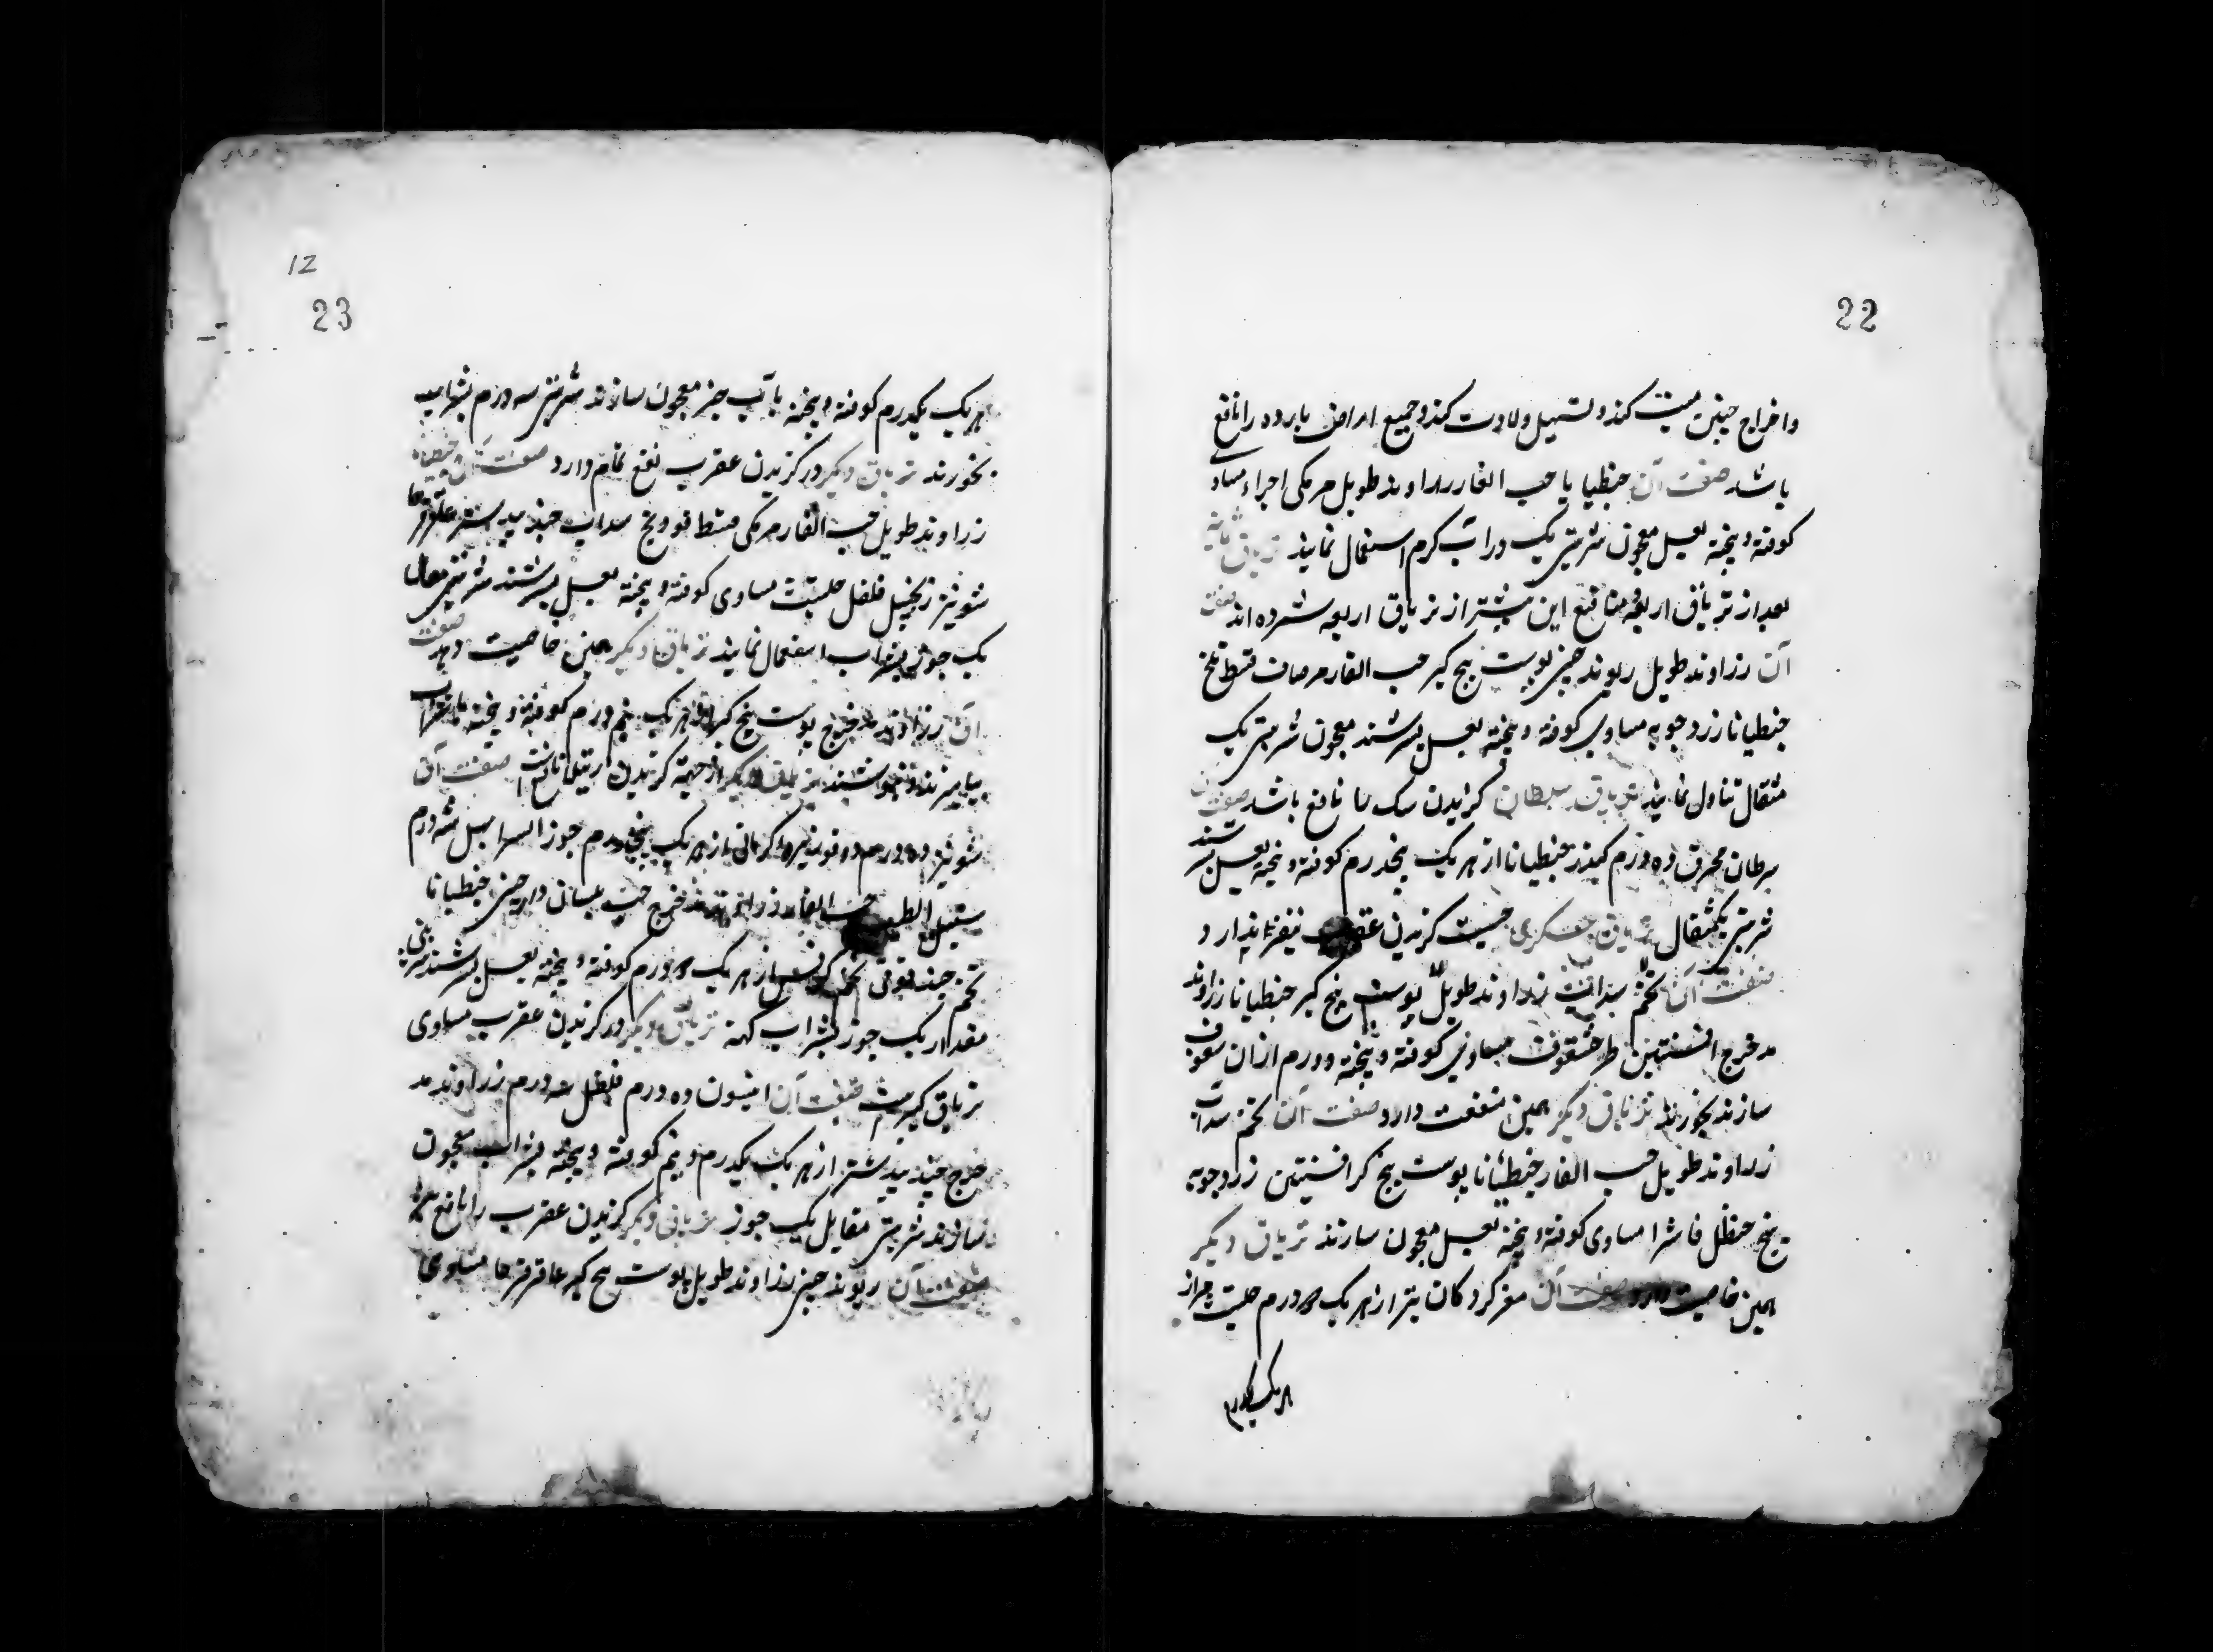 22
واخراج جنین میت کند و تسهیل ولادت کند و جمیع امراض بارده را نافع
باشد صفت آن جنطیانا حب الغار زراوند طویل مر مکی اجزاء مساوی
کوفته و بیخته بعسل معجون شربتی یک درآب گرم استعمال نمایند تریاق ثمانیه
بعد از تریاق اربعه و منافع این بیشتر از تریاق اربعه شمرده اند صفت
آن زراوند طویل ریوند چینی پوست بیخ کبر حب الغار مر صاف قسط تلخ
جنطیانا زردچوبه مساوی کوفته و بیخته بعسل بسرشند معجون شربتی یک
مثقال تناول نمایند تریاق سرطان گزیدن سک را نافع باشد صفت آن
سرطان محرق ده درم کندر جنطیانا از هر یک پنجدرم کوفته و بیخته بعسل بسرشند
شربتی یکمثقال تریاق عسکری جهت گزیدن عقرب نیز ندارد
صفت آن تخم سداب زراوند طویل پوست بیخ کبر جنطیانا زراوند
مدحرج افسنتین طرخشقوق مساوی کوفته و بیخته دو درم ازان سفوف
سازند بخورند تریاق دیگر همین منفعت دارد صفت آن تخم سداب
زراوند طویل حب الغار جنطیانا پوست بیخ کبر افسنتین زردچوبه
بیخ حنظل فاشرا مساوی کوفته و بیخته بعسل معجون سازند تریاق دیگر
همین خاصیت دارد صفت آن مغز گردکان از هر یک درم حلتیت مر از
هر یک یکدرم
12
23
هر یک یکدرم کوفته و بیخته بآب معجون سازند شربتی سه درم بشراب
بخورند تریاق دیگر در گزیدن عقرب نفع تمام دارد صفت آن جنطیانا
زراوند طویل حب الغار مر مکی قسط فودنج سداب جندبیدستر عاقرقرحا
شونیز زنجبیل فلفل حلتیت مساوی کوفته و بیخته بعسل بسرشند شربتی مقدار
یک جوز بشراب استعمال نمایند تریاق دیگر همین خاصیت دهد صفت
آن زراوند مدحرج پوست بیخ کبر از هر یک نیم درم کوفته و بیخته بشراب
بیامیزند و بنوشند تریاق دیگر از جهة گزیدن رتیلا نافع است صفت آن
شونیز ده درم دوقو زیره کرمانی از هر یک پنجدرم جوز السرو سنبل سه درم
سنبل الطیب حب الغار زراوند مدحرج حب بلسان دارچینی جنطیانا
تخم حندقوقی تخم کرفس از هر یک درم کوفته و بیخته بعسل بسرشند شربتی
مقدار یک جوز بشراب کهنه تریاق دیگر در گزیدن عقرب مساوی
تریاق کبیرست صفت آن انیسون ده درم فلفل سه درم زراوند مد
حرج جندبیدستر از هر یک یکدرم و نیم کوفته و بیخته بشراب معجون
سازند شربتی مقابل یک جوز تریاق دیگر گزیدن عقرب را نافع
صفت آن ریوند چینی زراوند طویل پوست بیخ کبر عاقرقرحا مساوی